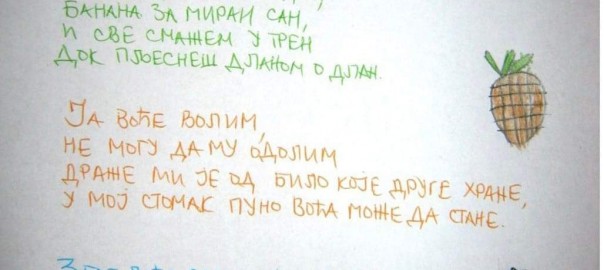 БАНАНА ЗА МИРАН САН,
И СВЕ СМАЖЕМ У ТРЕН
ДОК ПЉЕСНЕШ ДЛАНОМ О ДЛАН.
ЈА ВОЋЕ ВОЛИМ,
НЕ МОГУ ДА МУ ОДОЛИМ
ДРАЖЕ МИ ЈЕ ОД БИЛО КОЈЕ ДРУГЕ ХРАНЕ,
У МОЈ СТОМАК ПУНО ВОЋА МОЖЕ ДА СТАНЕ.